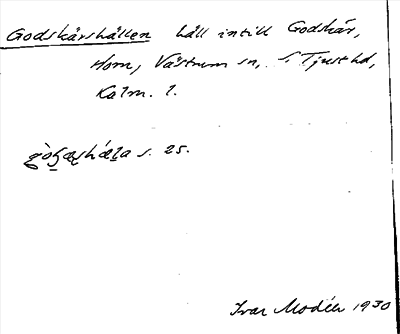 Godskärshällen häll intill Godskär,
Horn, Västrum sn, S. Tjust hd,
Kalm. l.
s. 25.
Ivar Modéer 1930